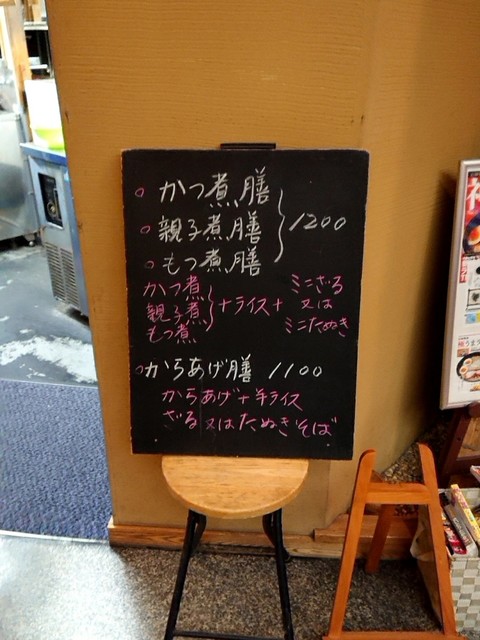 ○ かつ煮膳
○ 親子煮膳 } 1200
○ もつ煮膳
かつ煮 ミニざる
親子煮 } +ライス+ 又は
もつ煮 ミニたぬき
○からあげ膳 1100
からあげ+半ライス
ざる又はたぬきそば